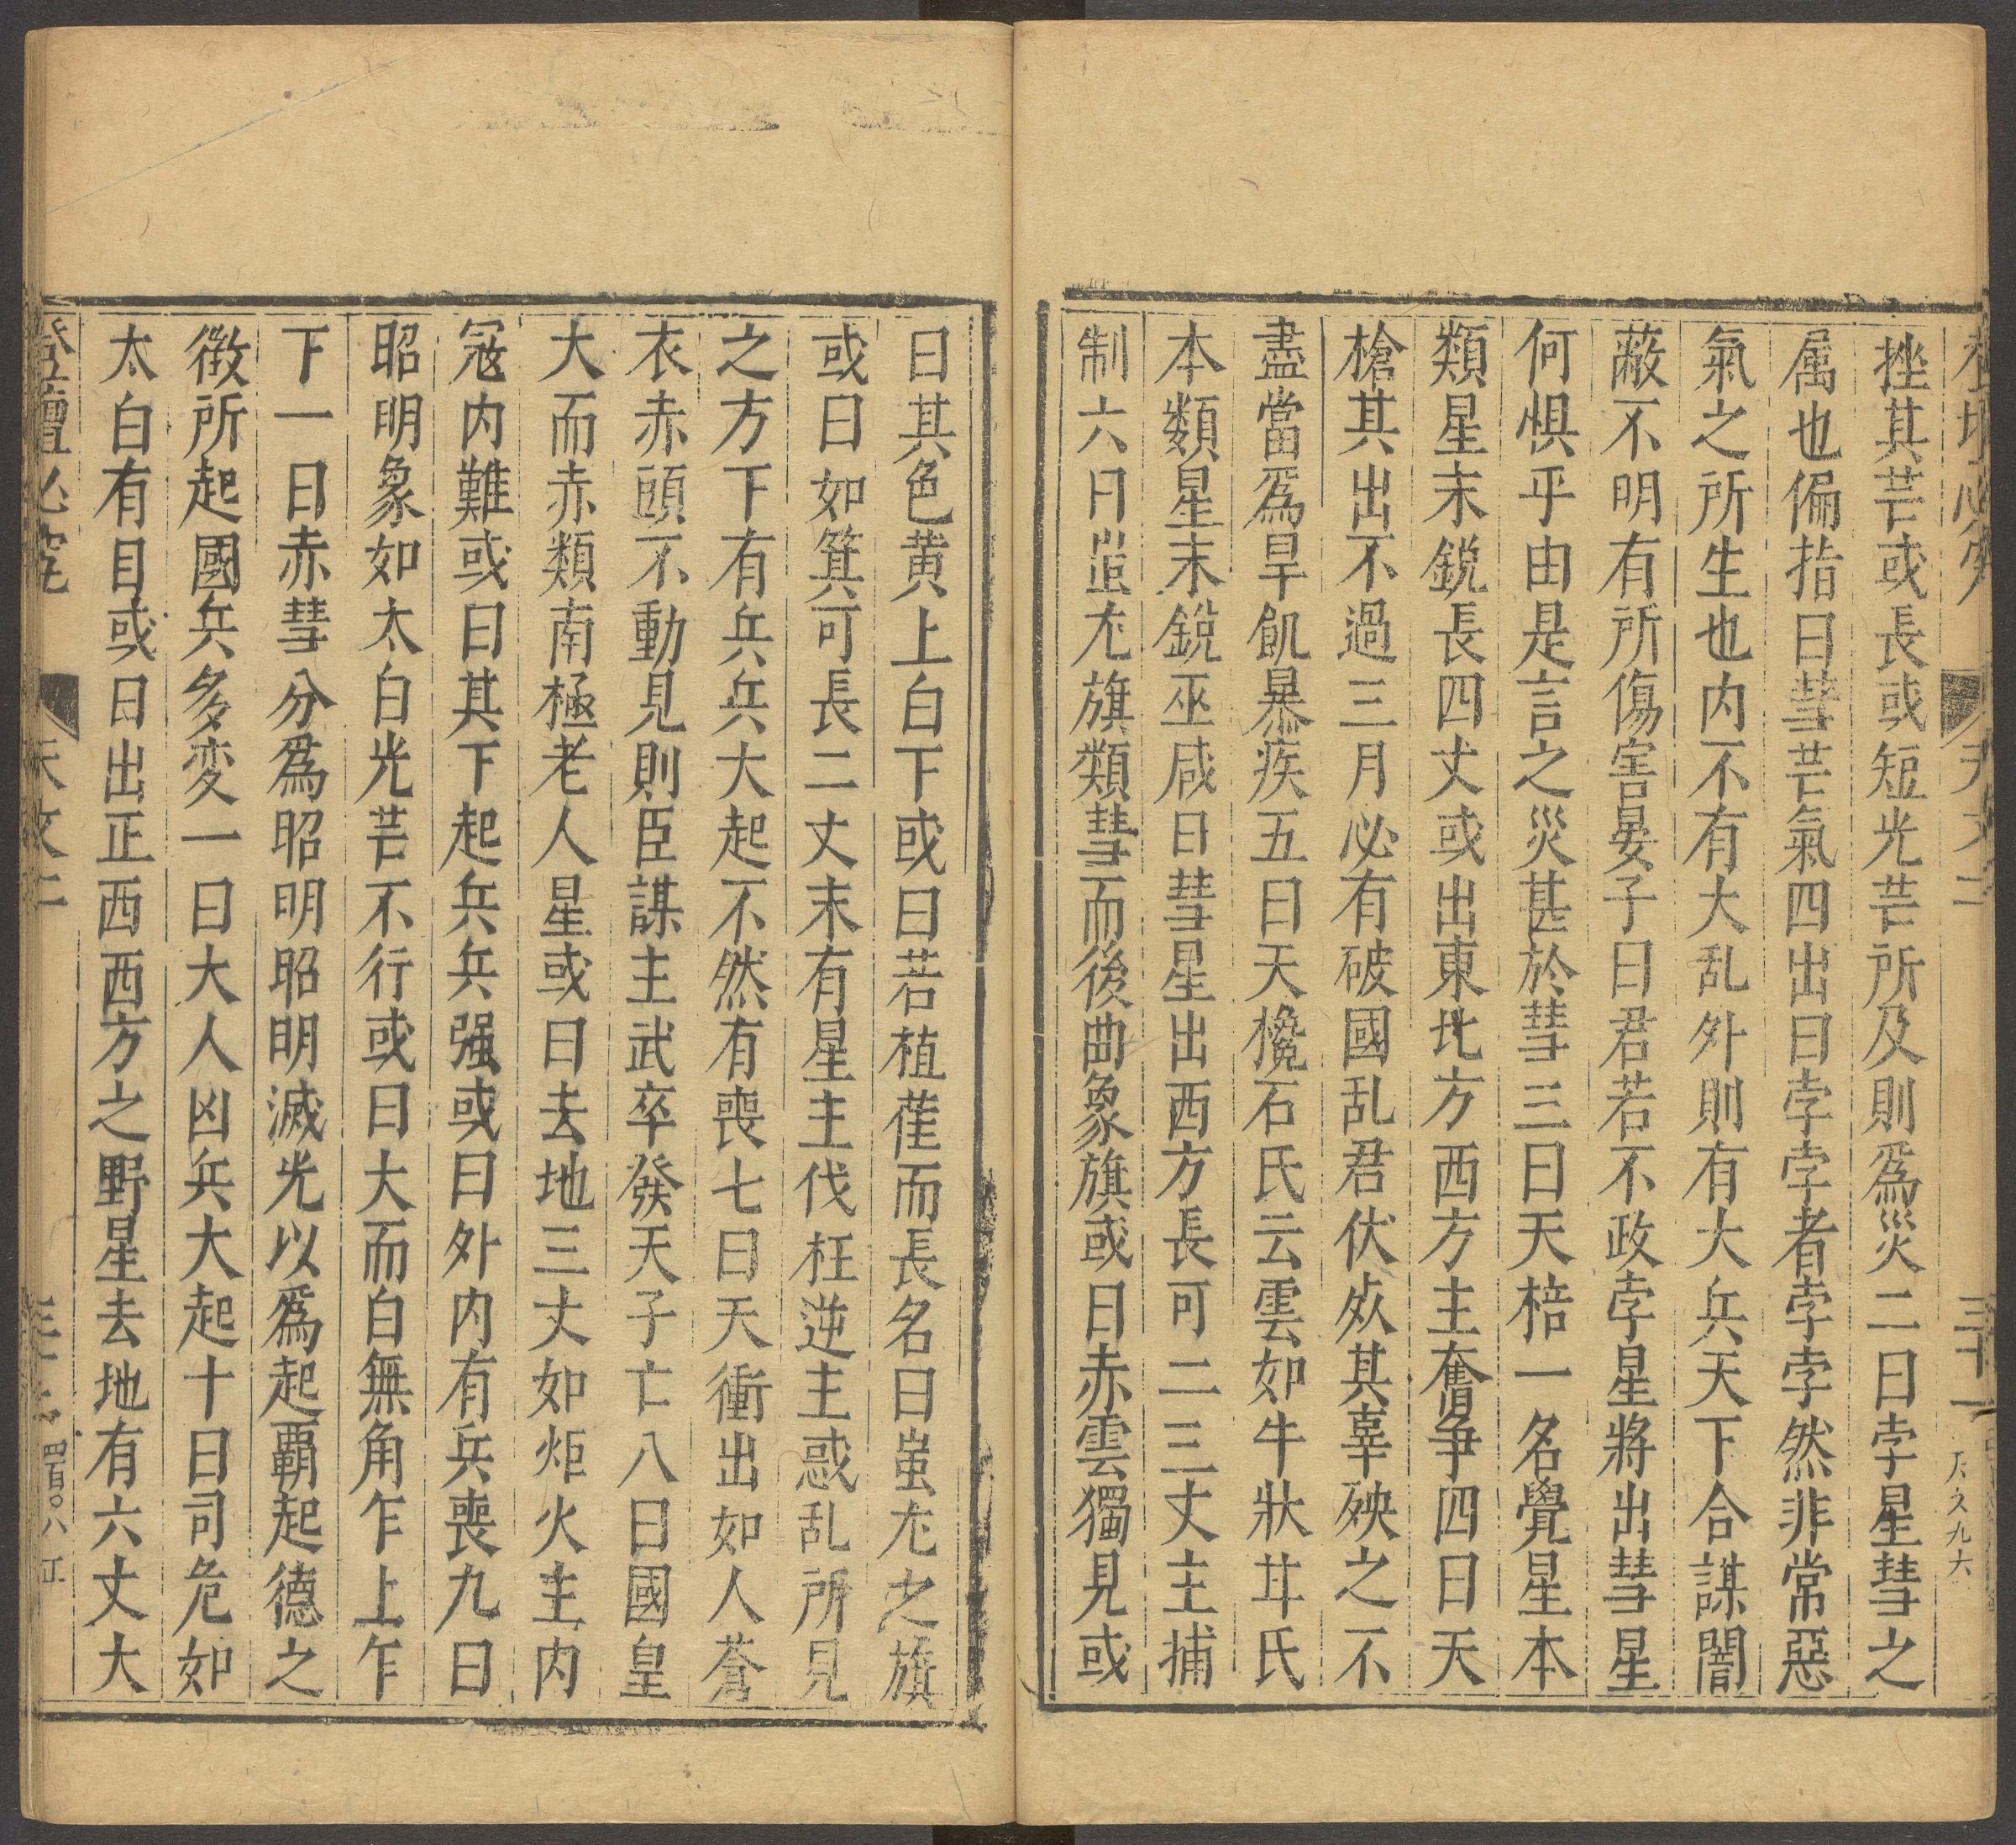 挫其芒或長或短光芒所及則爲災二曰孛星彗之
属也偏指曰彗芒氣四出曰孛孛者孛孛然非常惡
氣之所生也内不有大乱外則有大兵天下合謀闇
蔽不明有所傷害晏子曰君若不政孛星將出彗星
何惧乎由是言之災甚於彗三曰天棓一名覺星本
類星末銳長四丈或出東北方西方主奮争四曰天
槍其出不過三月必有破國乱君伏死其辜殃之不
盡當爲旱飢暴疾五曰天欃石氏云雲如牛狀甘氏
本類星末銳巫咸曰彗星出西方長可二三丈主捕
制六曰蚩尤旗類彗而後曲象旗或曰赤雲獨見或
曰其色黄上白下或曰若植雚而長名曰蚩尤之旗
或曰如箕可長二丈末有星主伐枉逆主惑乱所見
之方下有兵兵大起不然有喪七曰天衝出如人蒼
衣赤頭不動見則臣謀主武卒發天子亡八曰國皇
大而赤類南極老人星或曰去地三丈如炬火主内
寇内難或曰其下起兵兵强或曰外内有兵喪九曰
昭明象如太白光芒不行或曰大而白無角乍上乍
下一曰赤彗分爲昭明昭明滅光以爲起覇起德之
徵所起國兵多变一曰大人凶兵大起十曰司危如
太白有目或曰出正西西方之野星去地有六丈大
登壇必究 天文二